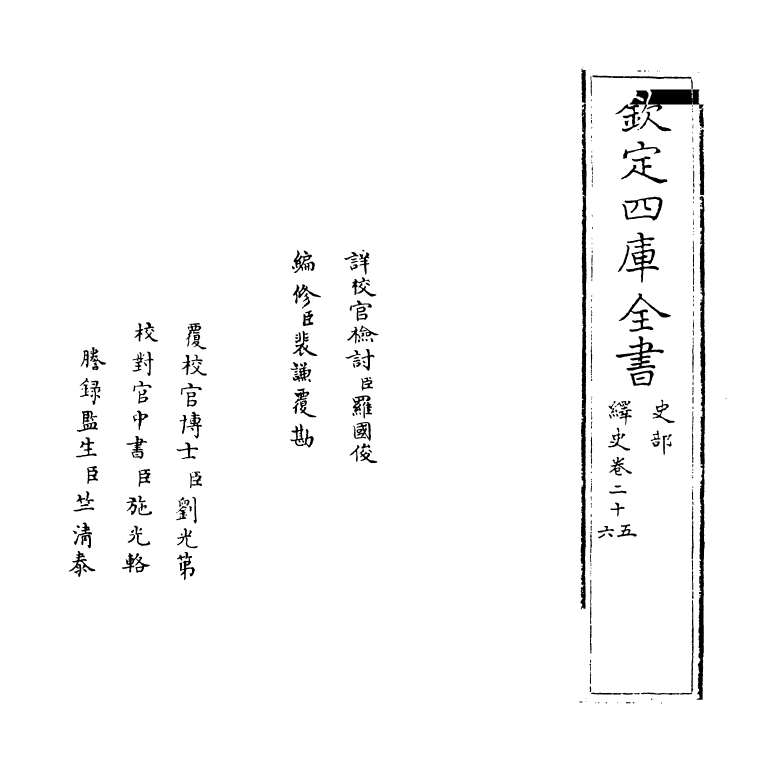 欽定四庫全書
史部
繹史卷二十五六
詳校官檢討臣羅國俊
編修臣裴謙覆勘
覆校官博士臣劉光第
校對官中書臣施光輅
謄錄監生臣竺清泰